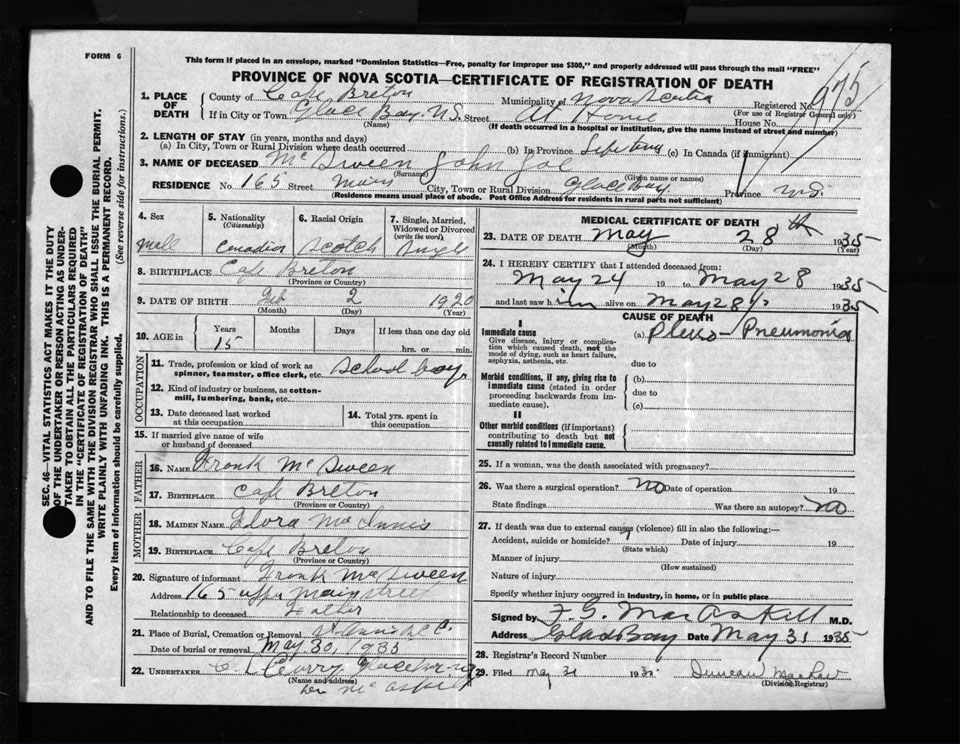 FORM 6
This form if placed in an envelope, marked "Dominion Statistics—Free, penalty for improper use $300," and properly addressed will pass through the mail "FREE"
PROVINCE OF NOVA SCOTIA—CERTIFICATE OF REGISTRATION OF DEATH
1. PLACE OF DEATH
County of Cape Breton Municipality of Nova Scotia Registered No. 975
(For use of Registrar General only)
If in City or Town Glace Bay N.S. Street At Home House No.
(Name) (If death occurred in a hospital or institution, give the name instead of street and number)
2. LENGTH OF STAY (in years, months and days)
(a) In City, Town or Rural Division where death occurred (b) In Province Life time (c) In Canada (if immigrant)
3. NAME OF DECEASED McSween John Joe
(Surname) (Given name or names)
RESIDENCE No. 165 Street Main City, Town or Rural Division Glace Bay Province N.S.
(Residence means usual place of abode. Post Office Address for residents in rural parts not sufficient)
4. Sex
Male
5. Nationality
(Citizenship)
Canadian
6. Racial Origin
Scotch
7. Single, Married, Widowed or Divorced
(write the word)
Single
8. BIRTHPLACE Cape Breton
(Province or Country)
9. DATE OF BIRTH Feb 2 1920
(Month) (Day) (Year)
10. AGE in Years Months Days If less than one day old
15 hrs. or min.
OCCUPATION
11. Trade, profession or kind of work as spinner, teamster, office clerk, etc. School boy
12. Kind of industry or business, as cotton-mill, lumbering, bank, etc.
13. Date deceased last worked at this occupation
14. Total yrs. spent in this occupation
15. If married give name of wife or husband of deceased
FATHER
16. NAME Frank McSween
17. BIRTHPLACE Cape Breton
(Province or Country)
MOTHER
18. MAIDEN NAME Flora McInnis
19. BIRTHPLACE Cape Breton
(Province or Country)
20. Signature of informant Frank McSween
Address 165 upper Main street
Relationship to deceased Father
21. Place of Burial, Cremation or Removal
Date of burial or removal May 30, 1935
22. UNDERTAKER C. Curry Glace Bay
(Name and address)
per McAskill
MEDICAL CERTIFICATE OF DEATH
23. DATE OF DEATH May 28th 1935
(Month) (Day) (Year)
24. I HEREBY CERTIFY that I attended deceased from:
May 24 19 to May 28 1935
and last saw him alive on May 28 1935
CAUSE OF DEATH
I
Immediate cause
Give disease, injury or complication which caused death, not the mode of dying, such as heart failure, asphyxia, asthenia, etc.
(a) Pleuro-Pneumonia
due to
Morbid conditions, if any, giving rise to immediate cause (stated in order proceeding backwards from immediate cause).
(b)
due to
(c)
II
Other morbid conditions (if important) contributing to death but not causally related to immediate cause.
25. If a woman, was the death associated with pregnancy?
26. Was there a surgical operation? No Date of operation 19
State findings Was there an autopsy? No
27. If death was due to external causes (violence) fill in also the following:—
Accident, suicide or homicide? Date of injury 19
(State which)
Manner of injury
(How sustained)
Nature of injury
Specify whether injury occurred in industry, in home, or in public place
Signed by F. G. MacAskill M.D.
Address Glace Bay Date May 31 1935
28. Registrar's Record Number
29. Filed May 31 1935 Duncan
(Division Registrar)
SEC. 46—VITAL STATISTICS ACT MAKES IT THE DUTY OF THE UNDERTAKER OR PERSON ACTING AS UNDERTAKER TO OBTAIN ALL THE PARTICULARS REQUIRED IN THE "CERTIFICATE OF REGISTRATION OF DEATH"
AND TO FILE THE SAME WITH THE DIVISION REGISTRAR WHO SHALL ISSUE THE BURIAL PERMIT.
WRITE PLAINLY WITH UNFADING INK. THIS IS A PERMANENT RECORD.
Every item of information should be carefully supplied. (See reverse side for instructions.)